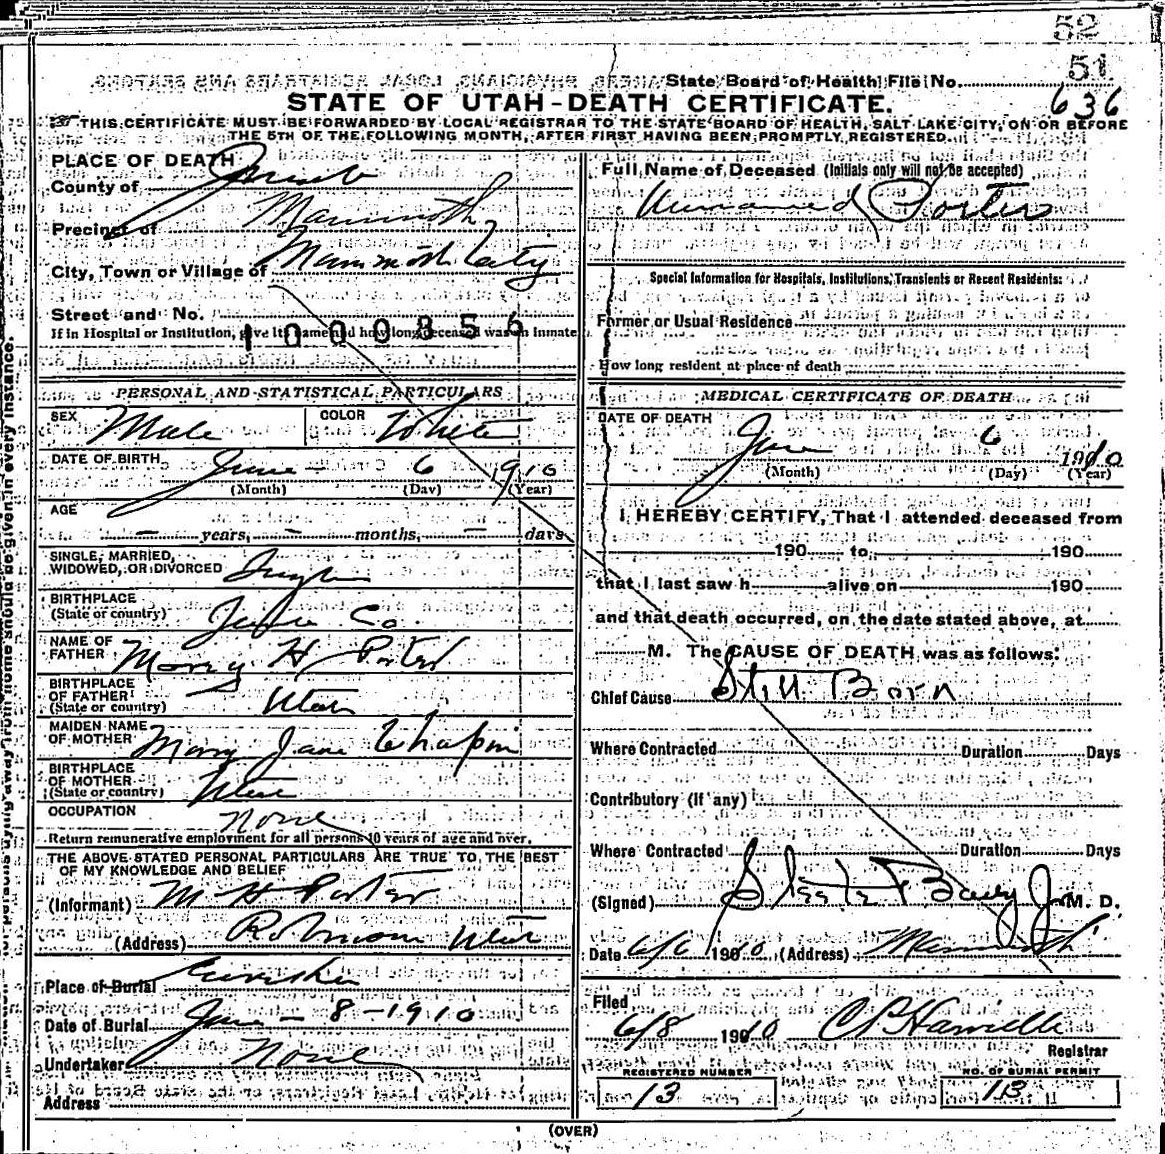 52
51
State Board of Health File No.
636
STATE OF UTAH-DEATH CERTIFICATE.
THIS CERTIFICATE MUST BE FORWARDED BY LOCAL REGISTRAR TO THE STATE BOARD OF HEALTH, SALT LAKE CITY, ON OR BEFORE
THE 5TH OF THE FOLLOWING MONTH, AFTER FIRST HAVING BEEN PROMPTLY REGISTERED.
PLACE OF DEATH
County of Juab
Precinct of Mammoth
City, Town or Village of Mammoth City
Street and No.
If in Hospital or Institution, give its name and how long deceased was an inmate
1000856
PERSONAL AND STATISTICAL PARTICULARS
SEX Male COLOR White
DATE OF BIRTH June - 6 1910
(Month) (Day) (Year)
AGE
- years, - months, - days
SINGLE, MARRIED,
WIDOWED, OR DIVORCED Single
BIRTHPLACE
(State or country) Co.
NAME OF
FATHER H Porter
BIRTHPLACE
OF FATHER Utah
(State or country)
MAIDEN NAME
OF MOTHER Mary Jane Chapin
BIRTHPLACE
OF MOTHER Utah
(State or country)
OCCUPATION None
Return remunerative employment for all persons 10 years of age and over.
THE ABOVE STATED PERSONAL PARTICULARS ARE TRUE TO THE BEST
OF MY KNOWLEDGE AND BELIEF
(Informant) M H Porter
(Address) Robinson Utah
Place of Burial Eureka
Date of Burial June - 8 - 1910
Undertaker None
Address
Full Name of Deceased (Initials only will not be accepted)
Unnamed Porter
Special Information for Hospitals, Institutions, Transients or Recent Residents:
Former or Usual Residence
How long resident at place of death
MEDICAL CERTIFICATE OF DEATH
DATE OF DEATH
June 6 1910
(Month) (Day) (Year)
I HEREBY CERTIFY, That I attended deceased from
190 to 190
that I last saw h alive on 190
and that death occurred, on the date stated above, at
M. The CAUSE OF DEATH was as follows:
Chief Cause Still Born
Where Contracted Duration Days
Contributory (if any)
Where Contracted Duration Days
(Signed) M. D.
Date 6/6 1910 (Address) Mammoth
Filed
6/8 1910
Registrar
REGISTERED NUMBER
13
NO. OF BURIAL PERMIT
13
(OVER)